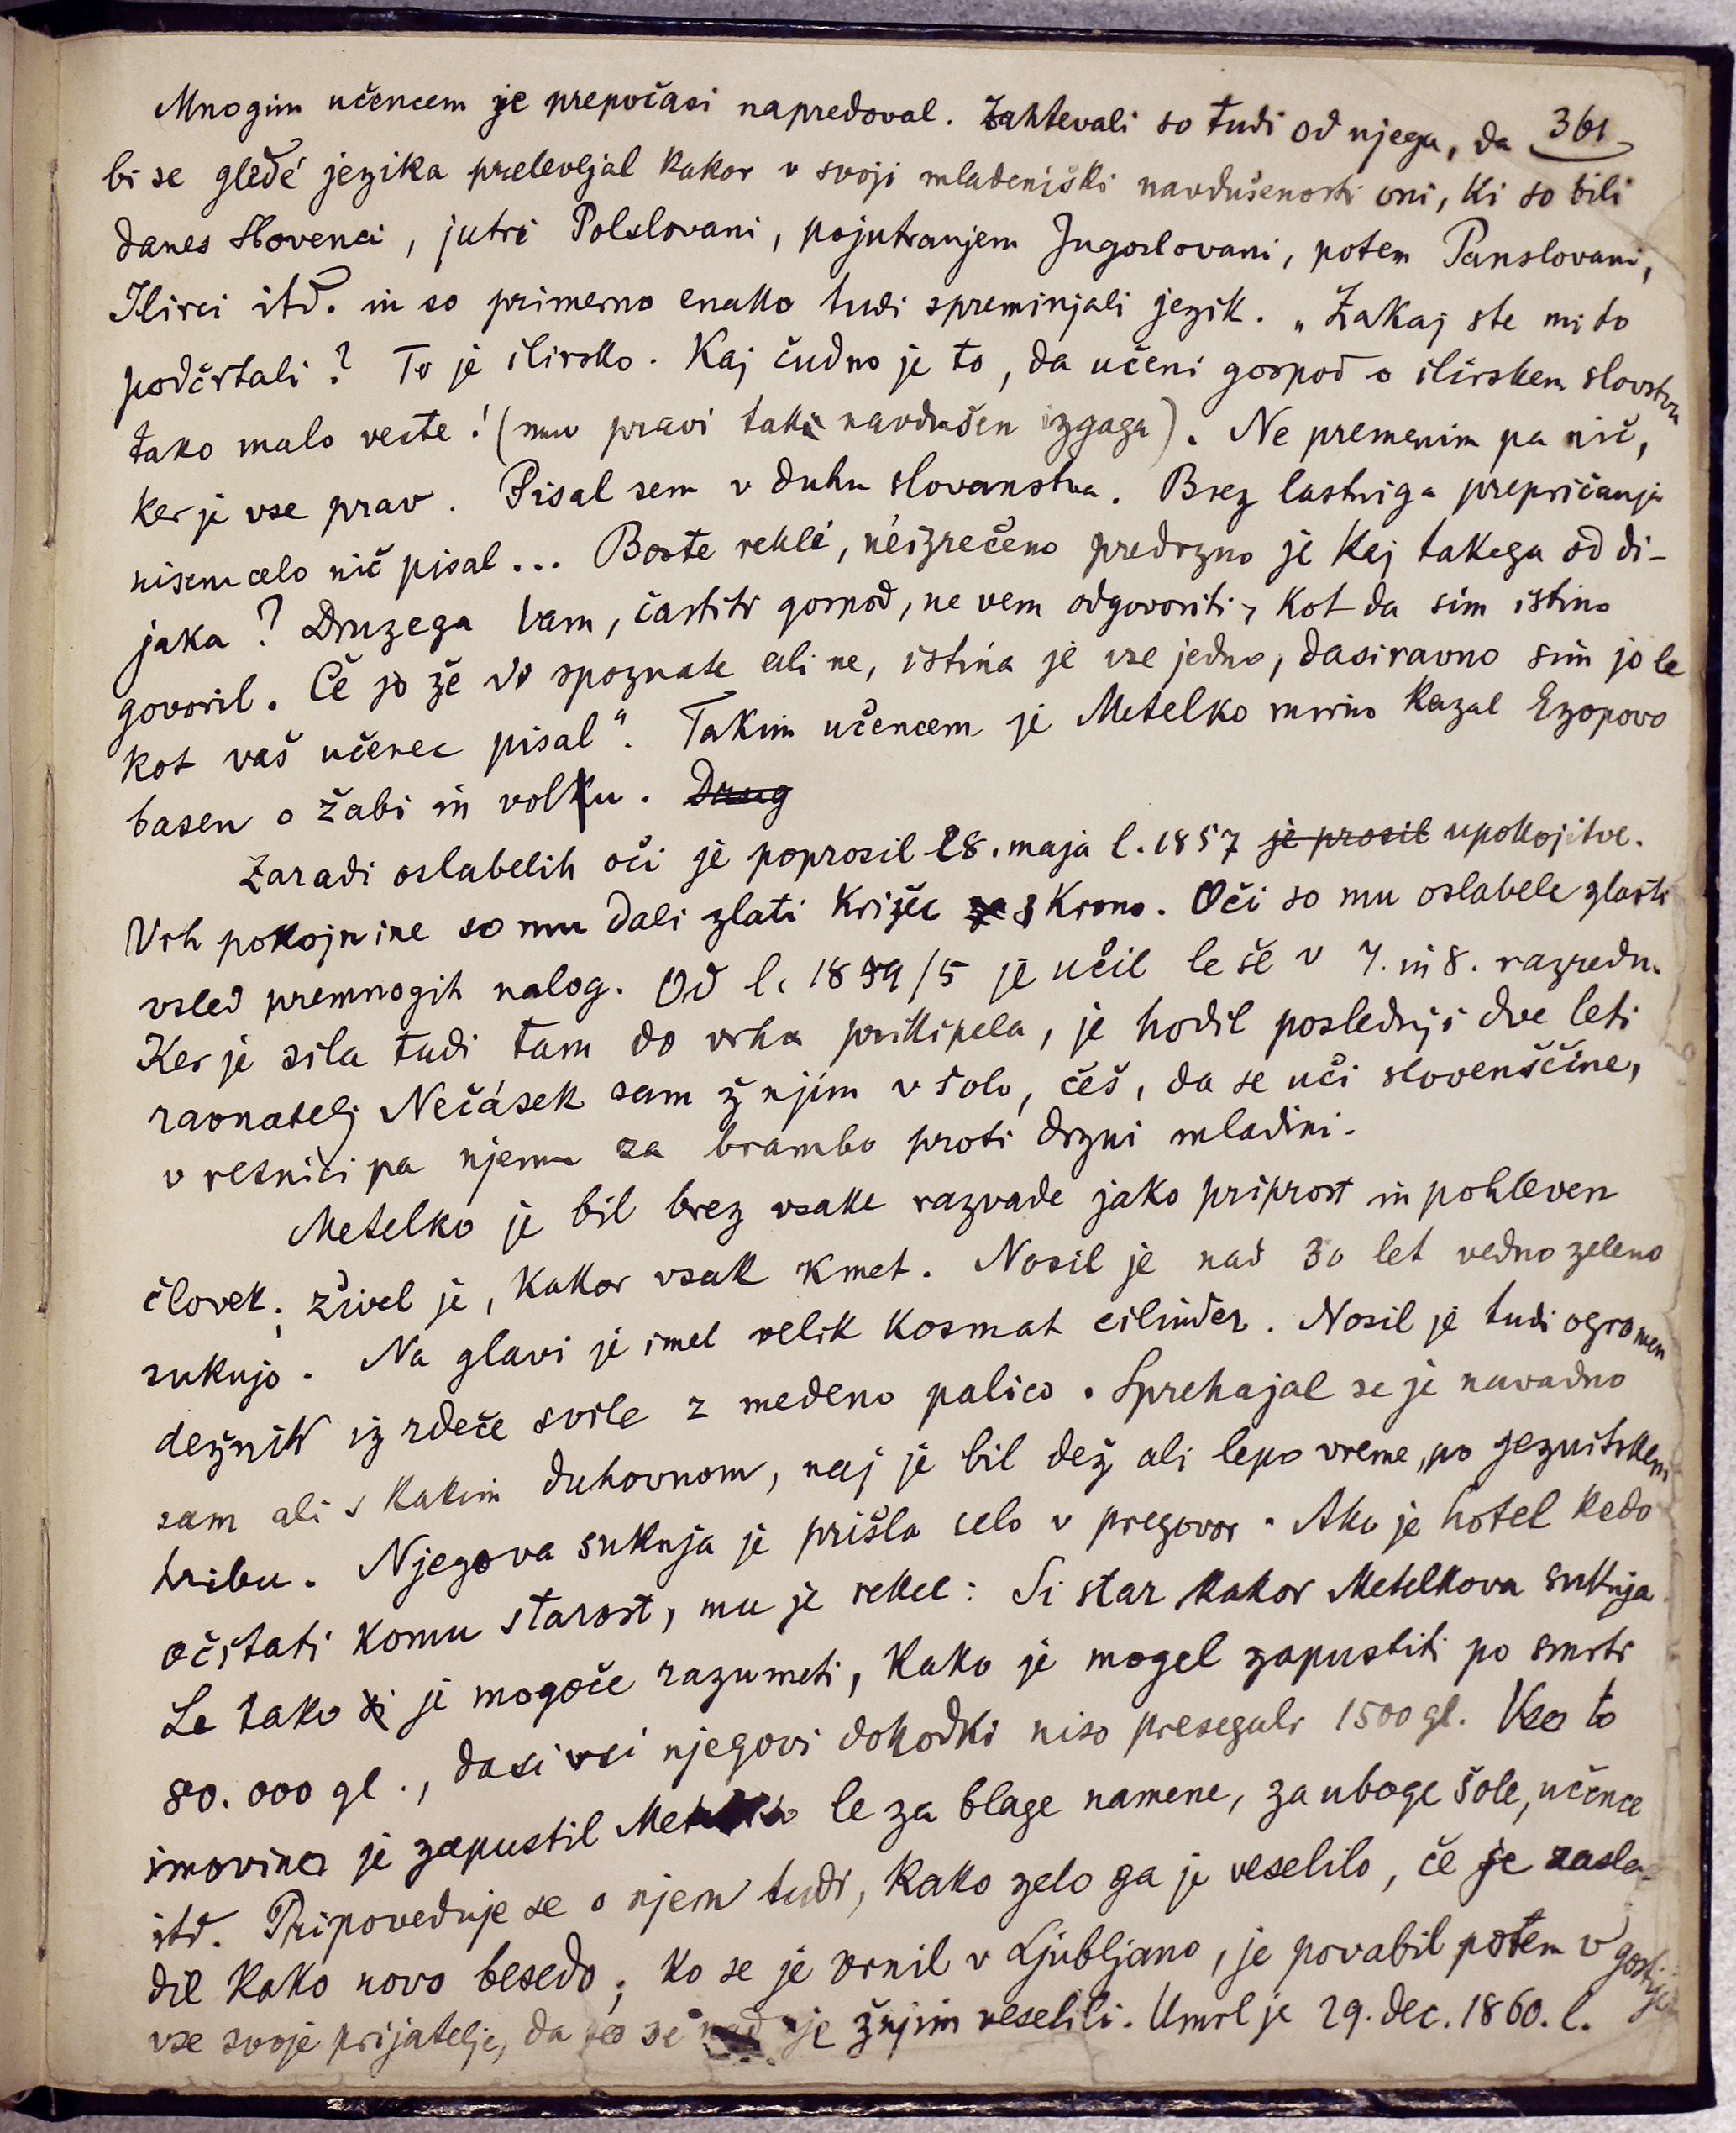 Mnogim učencem je prepočasi napredoval. Zahtevali so tudi od njega, da 361
bi se gledé jezika prelevljal kakor v svoji mladeniški navdušenosti oni, ki so bili
danes Slovenci, jutri Polslovani, pojutranjem Jugoslovani, potem Panslovani,
Ilirci itd. in so primerno enako tudi spreminjali jezik. „Zakaj ste mi to
podčrtali? To je ilirsko. Kaj čudno je to, da učeni gospod o ilirskem slovstvu
tako malo veste! (mu pravi tak navdušen izgaga). Ne premenim pa nič,
ker je vse prav. Pisal sem v duhu slovanstva. Brez lastniga prepričanja
nisem celo nič pisal... Boste rekli, neizrečeno predrzno je kaj takega od di-
jaka? Druzega Vam, častiti gospod, ne vem odgovoriti, kot da sim istino
govoril. Če jo že Vi spoznate ali ne, istina je vse jedno, dasiravno sim jo le
kot vaš učenec pisal“. Takim učencem je Metelko mirno kazal Ezopovo
basen o žabi in volu. Drug
Zaradi oslabelih oči je poprosil 28. maja l. 1857 je prosil upokojitve.
Vrh pokojnine so mu dali zlati križec s krono. Oči so mu oslabele zlasti
vsled premnogih nalog. Od l. /5 je učil le še v 7. in 8. razredu.
Ker je sila tudi tam do vrha prikipela, je hodil poslednji dve leti
ravnatelj Nečásek sam ž njim v šolo, češ, da se uči slovenščine,
v resnici pa njemu za brambo proti drzni mladini.
Metelko je bil brez vsake razvade jako priprost in pohleven
človek; živel je, kakor vsak kmet. Nosil je nad 30 let vedno zeleno
suknjo. Na glavi je imel velik kosmat cilinder. Nosil je tudi ogromen
dežnik iz rdeče svile z medeno palico. Sprehajal se je navadno
sam ali s kakim duhovnom, naj je bil dež ali lepo vreme, po jezuitskem
hribu. Njegova suknja je prišla celo v pregovor. Ako je hotel kedo
očitati komu starost, mu je rekel: Si star kakor Metelkova suknja.
Le tako je mogoče razumeti, kako je mogel zapustiti po smrti
80.000 gl., dasi vsi njegovi dohodki niso presegali 1500 gl. Vso to
imovino je zapustil Metelko le za blage namene, za uboge šole, učence
itd. Pripoveduje se o njem tudi, kako zelo ga je veselilo, če je zasle-
dil kako novo besedo; ko se je vrnil v Ljubljano, je povabil potem v
vse svoje prijatelje, da so se ž njim veselili. Umrl je 29. dec. 1860. l.